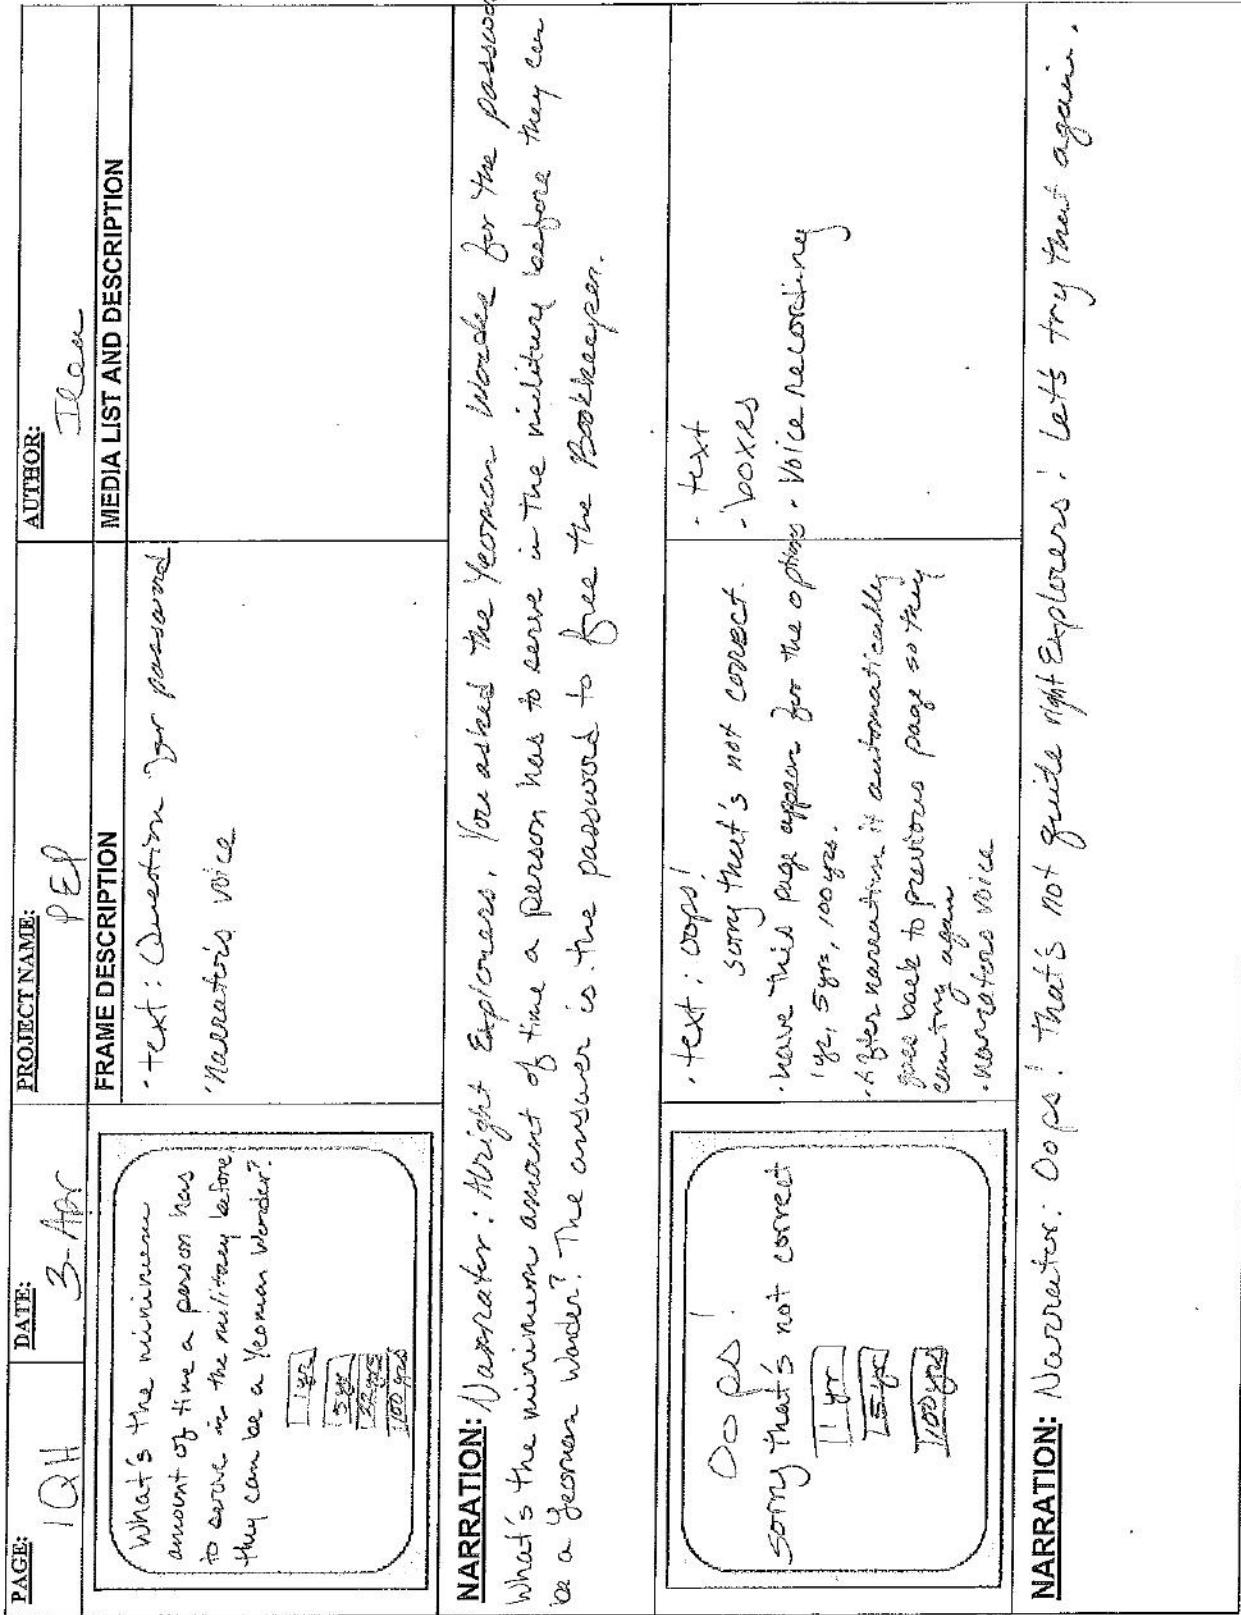 PAGE: 1QH
DATE: 3-Apr
PROJECT NAME: PEP
AUTHOR:
FRAME DESCRIPTION
MEDIA LIST AND DESCRIPTION
What's the minimum
amount of time a person has
to serve in the military before
they can be a Yeoman Warder?
1 yr
5 yr
22 yrs
100 yrs
· text: Question for password
· Narrator's voice
NARRATION: Narrator: Alright Explorers. You asked the Yeoman Warder for the password
What's the minimum amount of time a person has to serve in the military before they can
be a Yeoman Warder? The answer is the password to free the Bookkeeper.
Oops!
sorry that's not correct
1 yr
5 yr
100 yrs
· text: Oops!
sorry that's not correct.
· have this page appear for the options
1 yr, 5 yrs, 100 yrs.
· After narration it automatically
goes back to previous page so they
can try again
· narrators voice
· text
· boxes
· voice recording
NARRATION: Narrator: Oops! that's not quite right Explorers! Let's try that again.